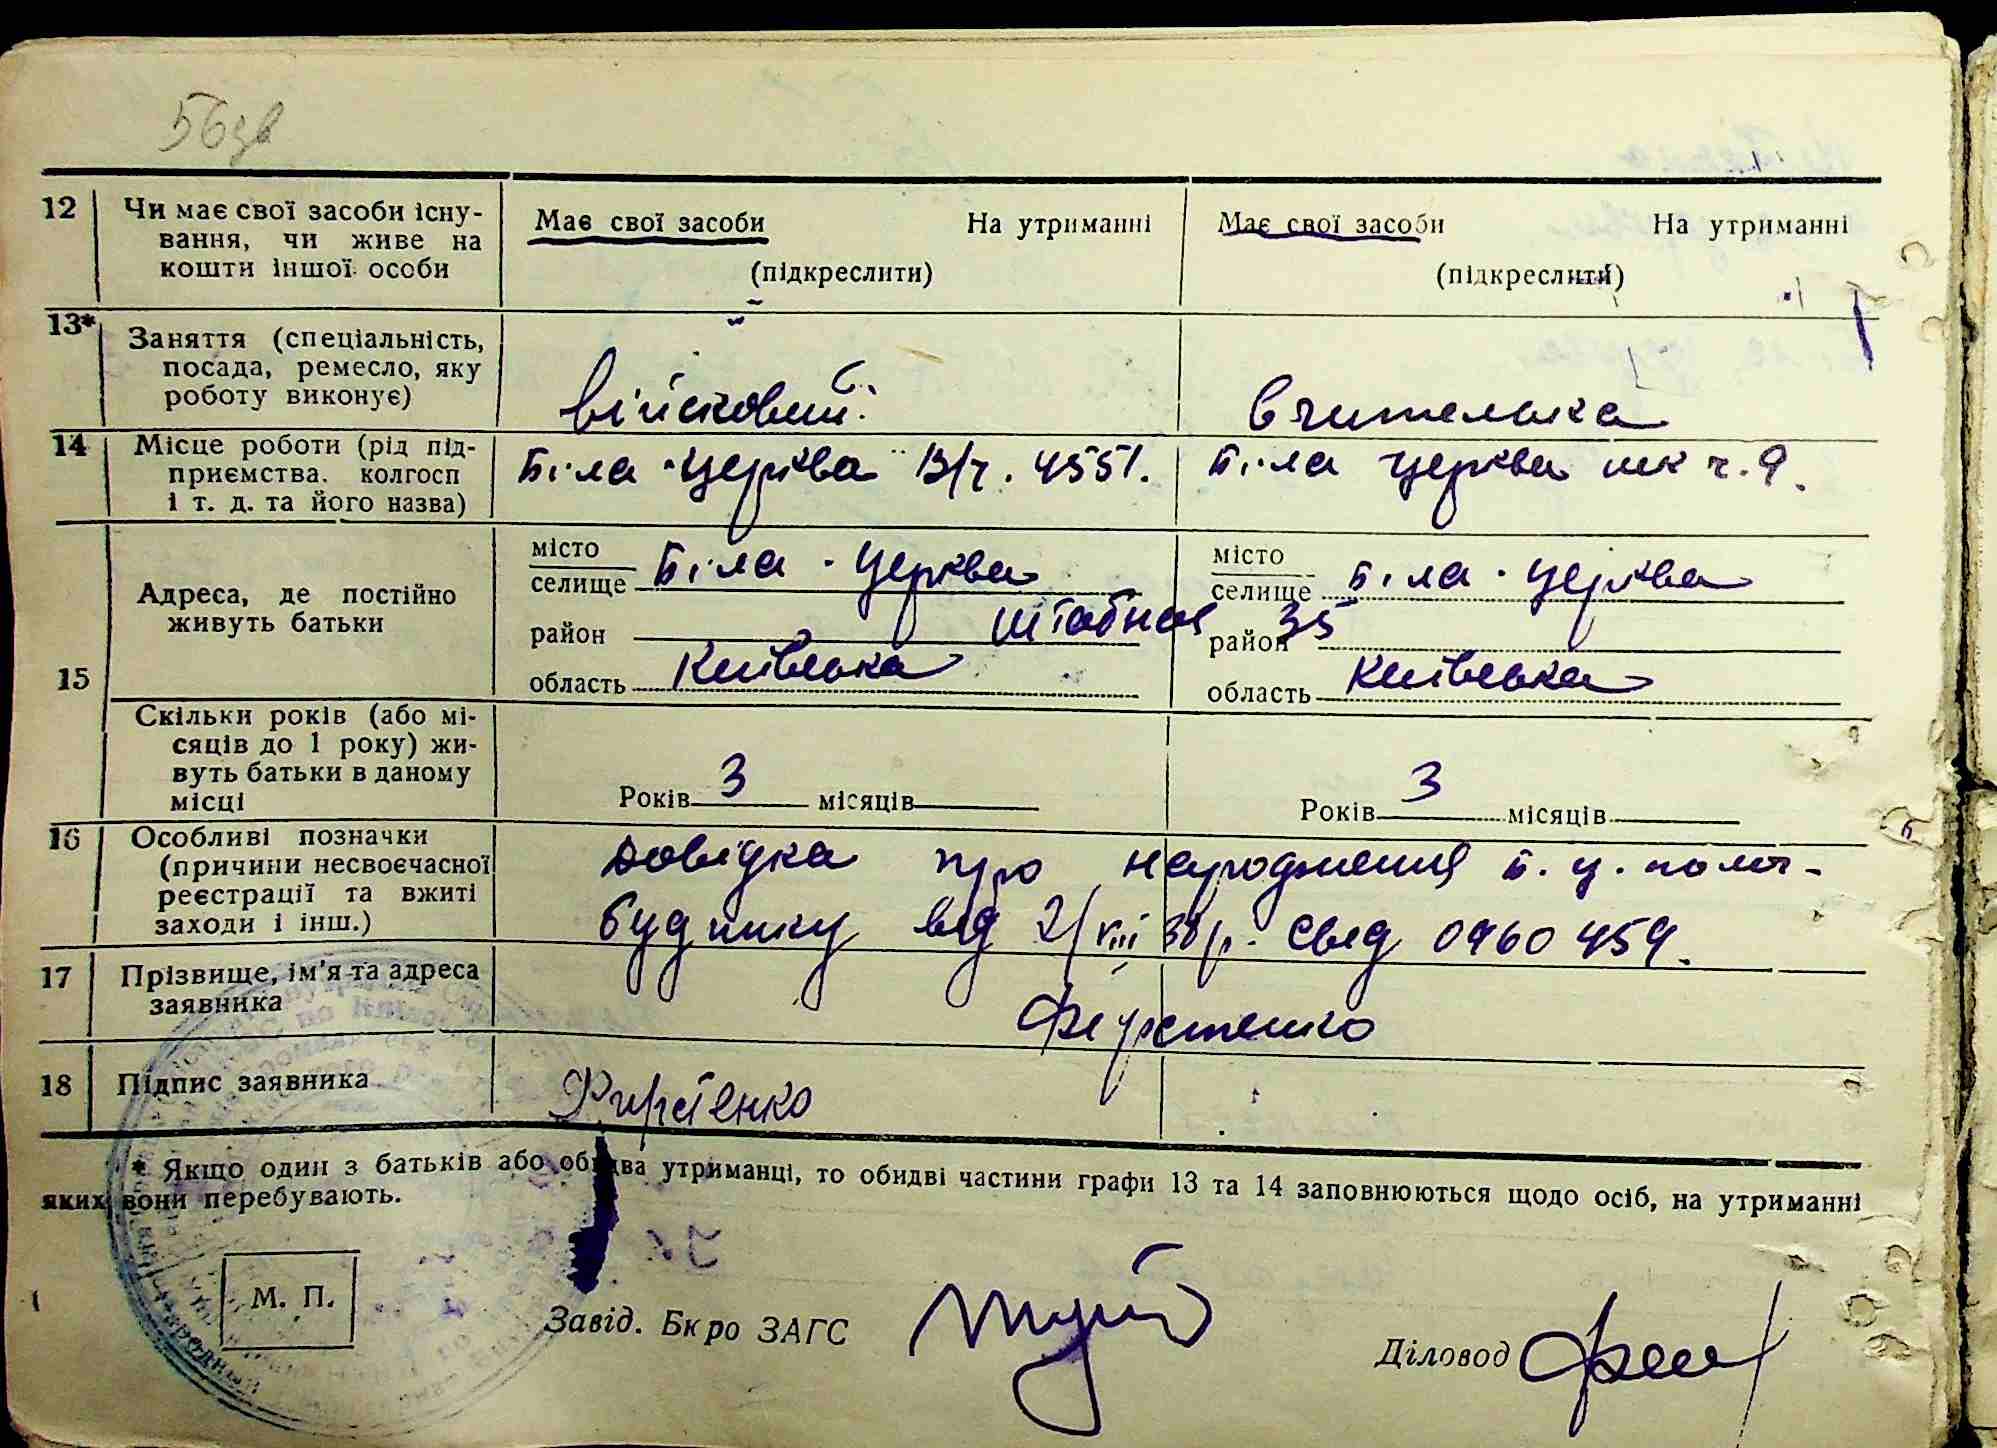 56зв
12 Чи має свої засоби існу- Має свої засоби На утриманні Має свої засоби На утриманні
вання, чи живе на
кошти іншої особи (підкреслити) (підкреслити)
13* Заняття (спеціальність,
посада, ремесло, яку
роботу виконує) військовий. вчителька
14 Місце роботи (рід під- Біла-Церква В/ч. 4551. Біла церква шк ч. 9.
приємства. колгосп
і т. д. та його назва)
місто місто
селище Біла-Церква селище Біла-Церква
Адреса, де постійно
живуть батьки
район Штабная район 35
15 область Київська область Київська
Скільки років (або мі-
сяців до 1 року) жи-
вуть батьки в даному
місці Років 3 місяців Років 3 місяців
16 Особливі позначки Довідка про народження Б. Ц. полог-
(причини несвоєчасної
реєстрації та вжиті будинку від 2/VIII 38 р. Свід 0960459.
заходи і інш.)
17 Прізвище, ім'я та адреса
заявника
18 Підпис заявника
* Якщо один з батьків або обидва утриманці, то обидві частини графи 13 та 14 заповнюються щодо осіб, на утриманні
яких вони перебувають.
М. П.
Завід. Бюро ЗАГС
Діловод